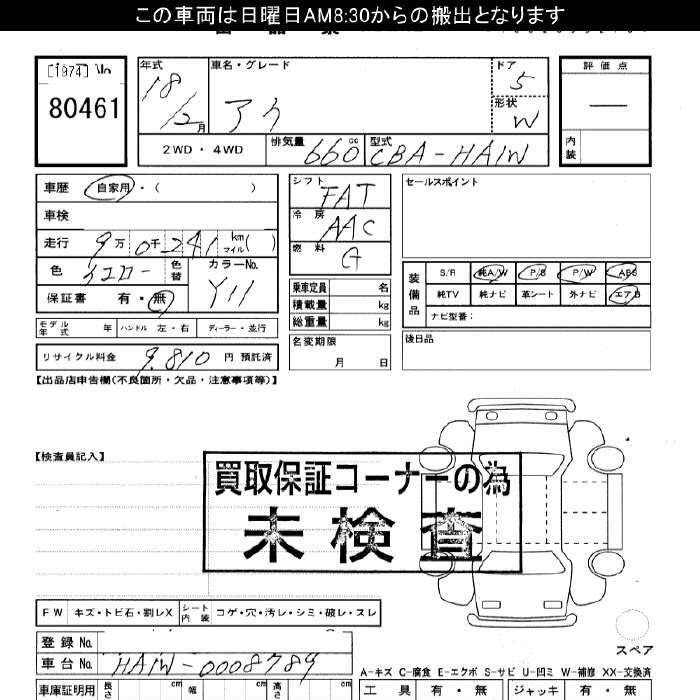 この車両は日曜日AM8:30からの搬出となります
[1974] No
80461
年式 車名・グレード ドア 評価点
18 アイ 5
/2月 形状 W
2WD・4WD 排気量 660cc 型式 CBA-HA1W 内装
車歴 自家用・( ) シフト FAT セールスポイント
車検 冷房 AAC
走行 9万0千241km マイル( ) 燃料 G
色 イエロー 色替 カラーNo. Y11 装備品 S/R 純A/W P/S P/W ABS
保証書 有・無 乗車定員 名 純TV 純ナビ 革シート 外ナビ エアB
積載量 kg ナビ型番:
モデル年式 年 ハンドル 左・右 ディーラー・並行 総重量 kg
リサイクル料金 9,810円 預託済 名変期限 月 日 後日品
【出品店申告欄(不良箇所・欠品・注意事項等)】
【検査員記入】
買取保証コーナーの為
未検査
FW キズ・トビ石・割レX シート内装 コゲ・穴・汚レ・シミ・破レ・スレ
登録No. スペア
車台No. HA1W-0008789
A-キズ C-腐食 E-エクボ S-サビ U-凹ミ W-補修 XX-交換済
車庫証明用 長さ cm 幅 cm 高さ cm 工具 有・無 ジャッキ 有・無